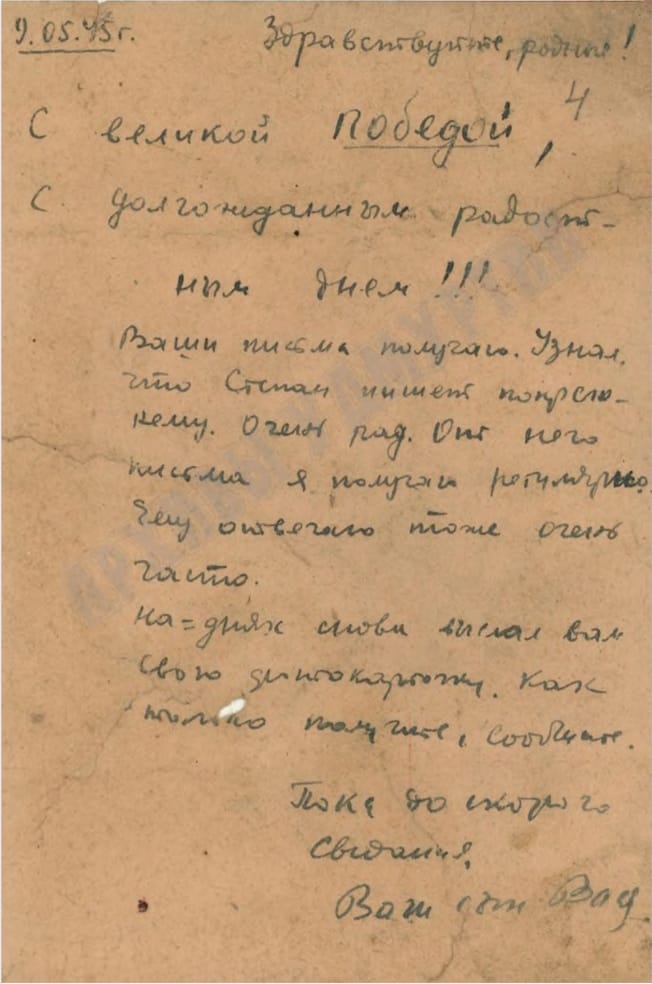 9.05.45г.
Здравствуйте, родные!
4
С великой Победой,
С долгожданным радост-
ным днем!!!
Ваши письма получаю. Узнал,
что Степан пишет по-
нему. Очень рад. От него
письма я получаю регулярно.
Ему отвечаю тоже очень
часто.
На=днях снова выслал вам
свою фотокарточку. Как
только получите, сообщите.
Пока до скорого
свидания,
Ваш сын
АРХИВЫ УДМУРТИИ